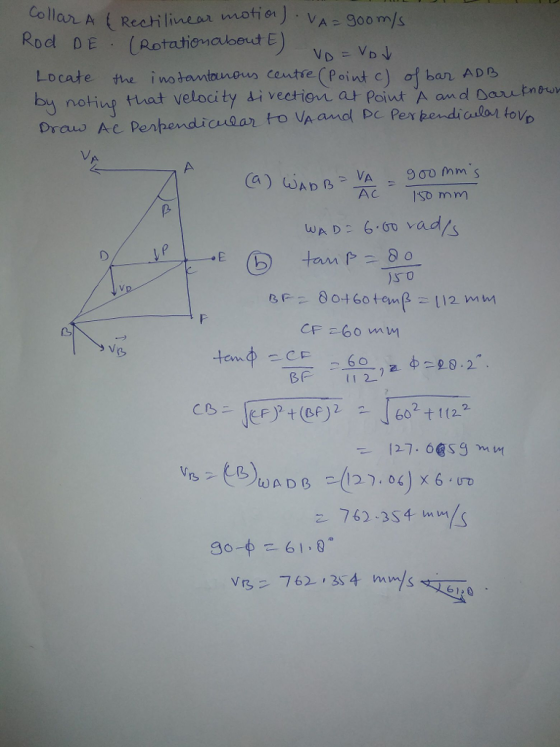 Collar A (Rectilinear motion). VA = 900 m/s
Rod DE. (Rotation about E)
VD = VD ↓
Locate the instantanous centre (Point C) of bar ADB
by noting that velocity direction at point A and D are known
Draw AC Perpendicular to VA and DC Perpendicular to VD
VA
A
B
D
P
C
E
VD
B
VB
F
(a) ωADB = VA/AC = 900 mm/s / 150 mm
ωAD = 6.00 rad/s
(b) tan β = 80/150
BF = 80+60 tanβ = 112 mm
CF = 60 mm
tan ϕ = CF/BF = 60/112, ϕ = 28.2°
CB = √(CF)²+(BF)² = √60²+112²
= 127.059 mm
VB = (CB) ωADB = (127.06) × 6.00
= 762.354 mm/s
90-ϕ = 61.8°
VB = 762.354 mm/s 61.8